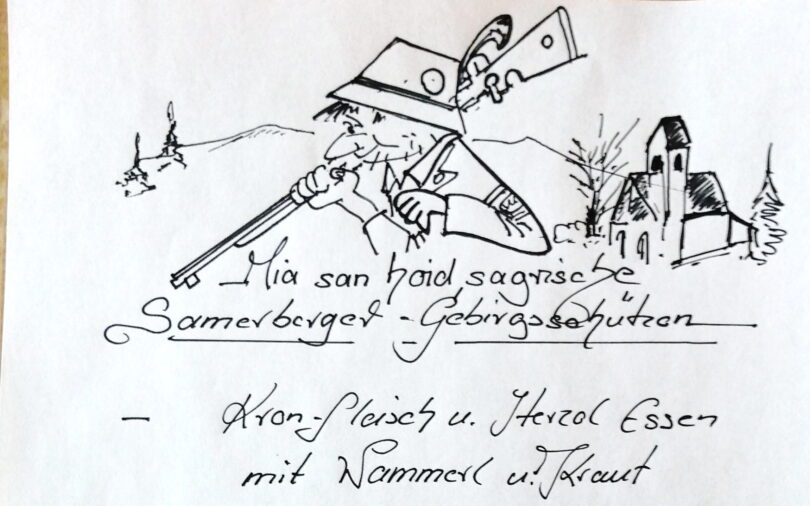 Mia san hoid sagrische
Samerberger - Gebirgsschützen
- Kron-fleisch u. Herzal Essen
mit Wammerl u. Kraut